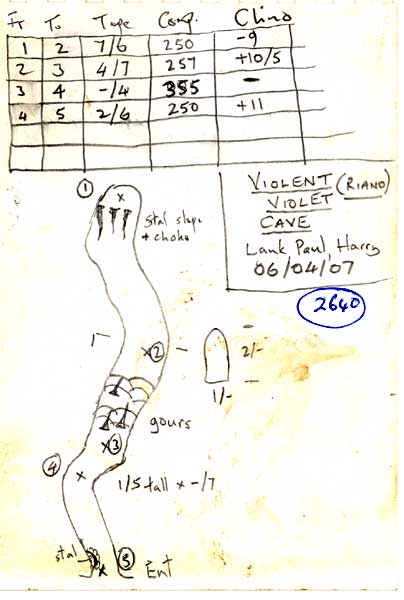 Fr To Tape Comp. Clino
1 2 7/6 250 -9
2 3 4/7 257 +10/5
3 4 -/4 355 -
4 5 2/6 250 +11
VIOLENT (RIANO)
VIOLET
CAVE
Lank Paul, Harry
06/04/07
2640
1
x
Stal slope
+ choke
1-
x2 -
2/-
1/-
gours
x3
4
x
1/5 tall x -/7
stal
x
5 Ent